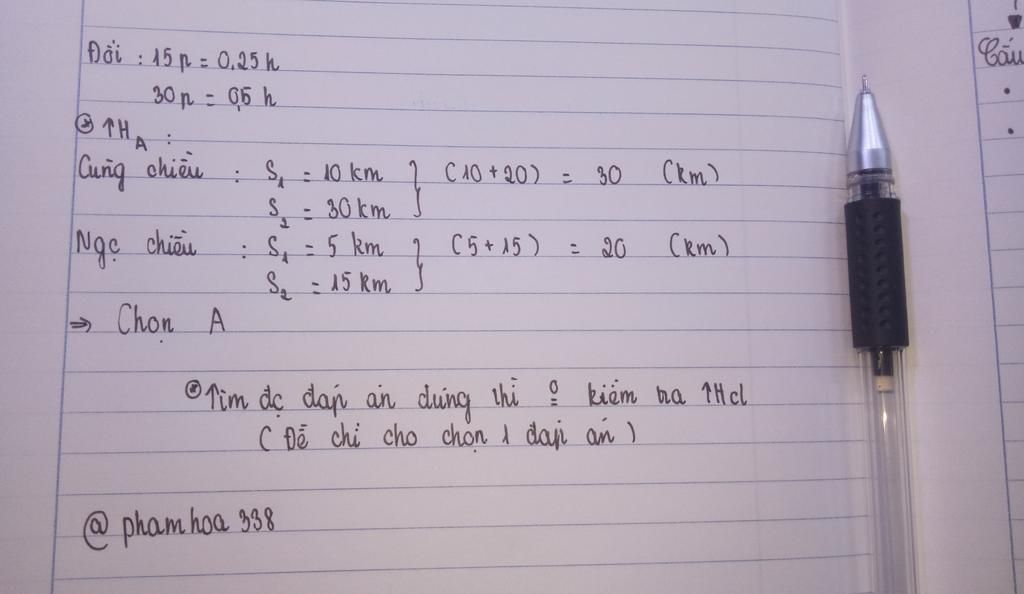 Đổi : 15p = 0,25h
30p = 0,5 h
⊛ ↑H_A :
Cùng chiều : S₁ = 10 km } (10+20) = 30 (km)
S₂ = 30 km
Ngc̣ chiều : S₁ = 5 km } (5+15) = 20 (km)
S₂ = 15 km
⇒ Chọn A
⊛ Tìm đc̣ đáp án đúng thì o kiểm tra ↑H cl
(Đề chỉ cho chọn 1 đáp án)
@phamhoa338
Câu